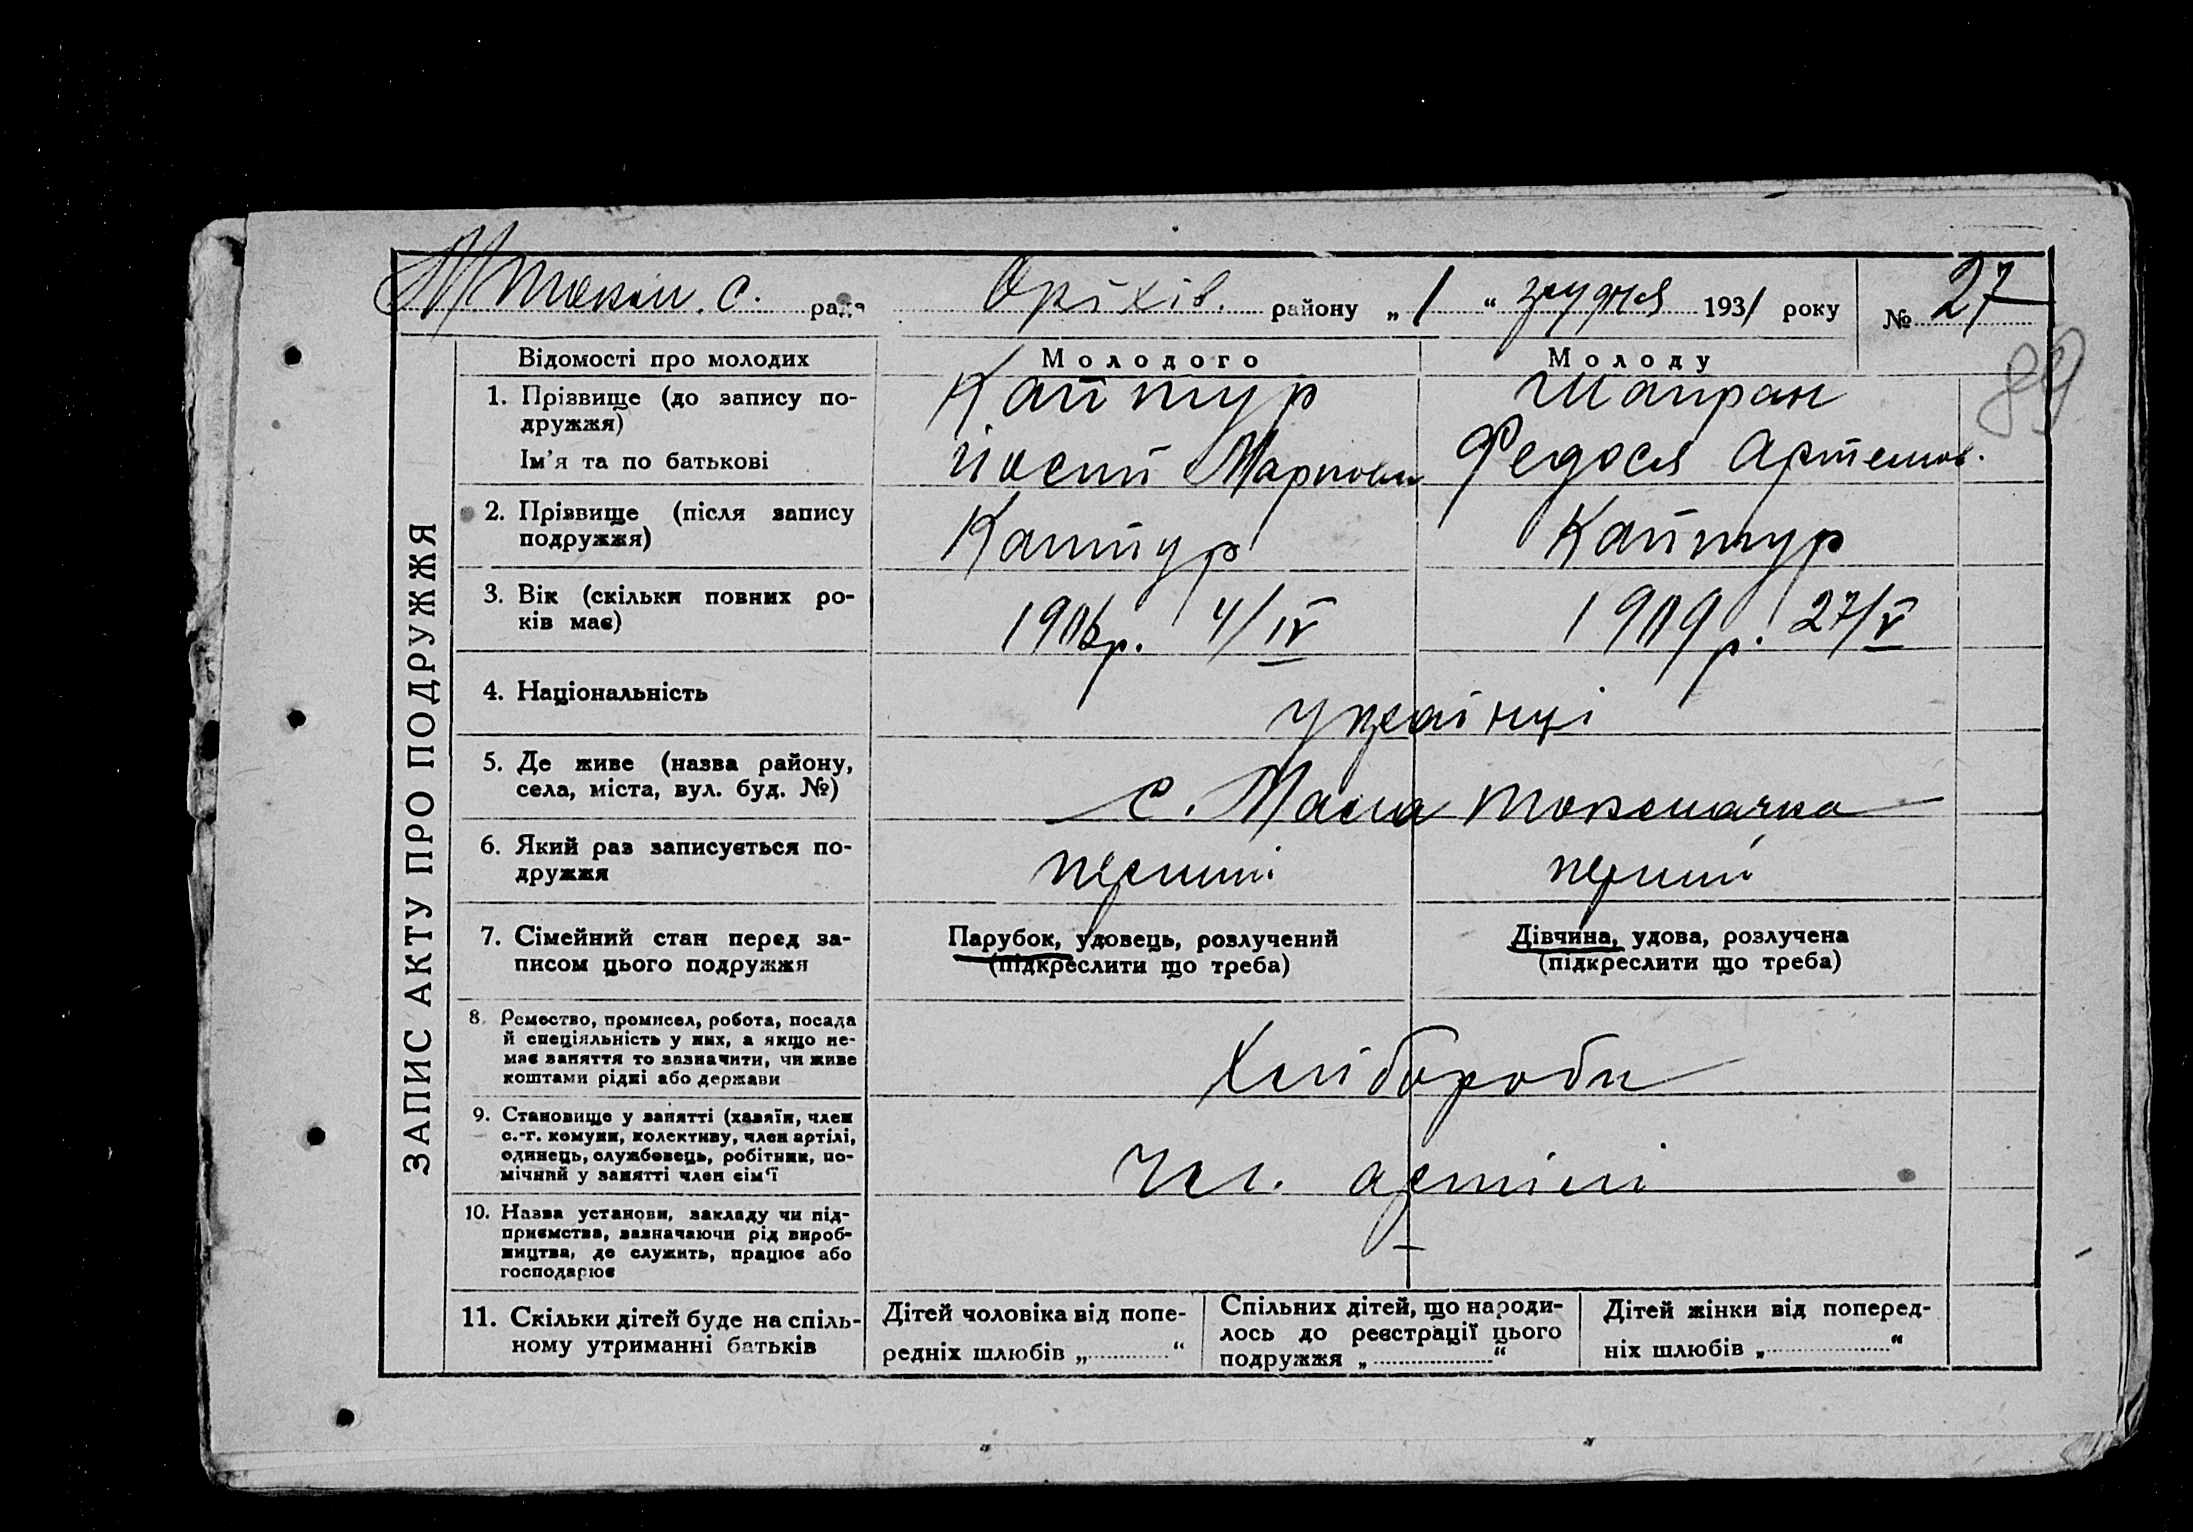 М Токм. с. рада Оріхів. району „1“ грудня 1931 року № 27
89
ЗАПИС АКТУ ПРО ПОДРУЖЖЯ
Відомості про молодих Молодого Молоду
1. Прізвище (до запису по-
дружжя) Каптур Шапран
Ім'я та по батькові Йосип Маркови Федося Артемов.
2. Прізвище (після запису
подружжя) Каптур Каптур
3. Вік (скільки повних ро-
ків має) 1906р. 4/IV 1909р. 27/V
4. Національність українці
5. Де живе (назва району,
села, міста, вул. буд. №) с. Мала Токмачка
6. Який раз записується по-
дружжя перший перший
7. Сімейний стан перед за-
писом цього подружжя
Парубок, удовець, розлучений
(підкреслити що треба)
Дівчина, удова, розлучена
(підкреслити що треба)
8. Ремество, промисел, робота, посада
й спеціяльність у них, а якщо не-
має заняття то зазначити, чи живе
коштами рідні або держави
Хлібороби
9. Становище у занятті (хазяїн, член
с.-г. комуни, колективу, член артілі,
одинець, службовець, робітник, по-
мічний у занятті член сім'ї
чл. артілі
10. Назва установи, закладу чи під-
приємства, зазначаючи рід вироб-
ництва, де служить, працює або
господарює
–
11. Скільки дітей буде на спіль-
ному утриманні батьків
Дітей чоловіка від попе-
редніх шлюбів „............“
Спільних дітей, що народи-
лось до реєстрації цього
подружжя „............“
Дітей жінки від поперед-
ніх шлюбів „............“